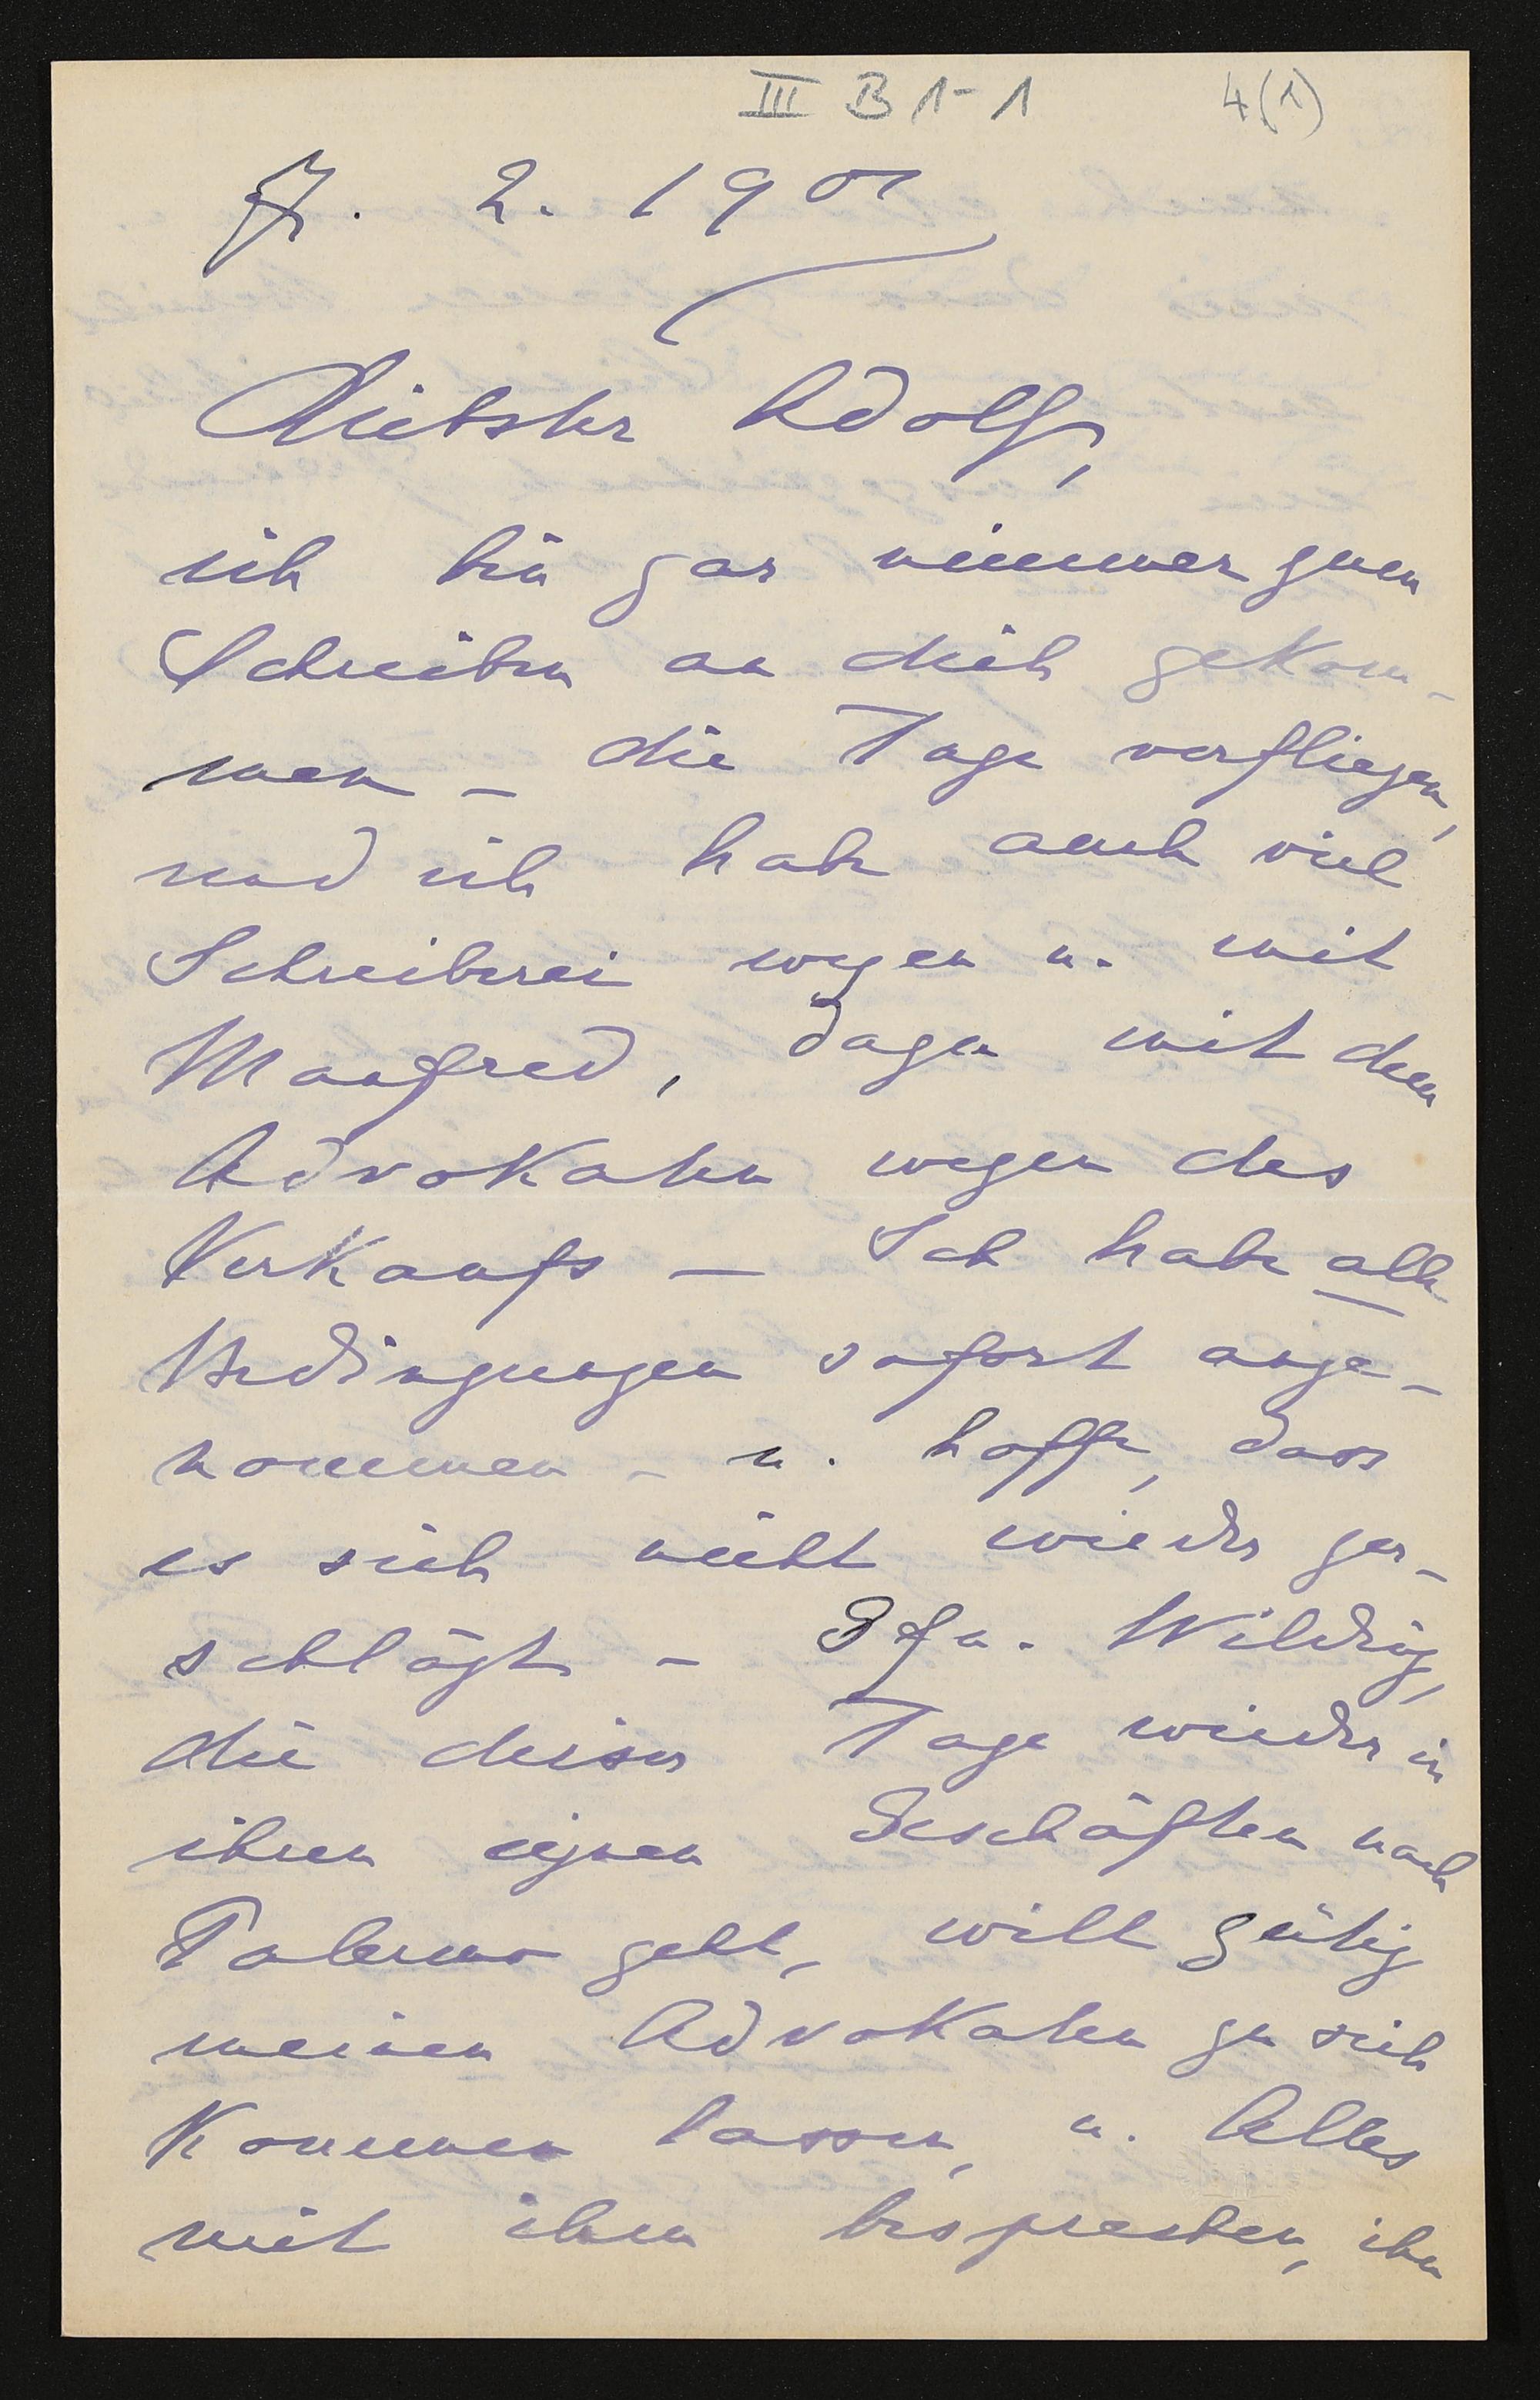 III B 1-1 4(1)
7. 2. 1901
Liebster Adolf,
ich bin gar nimmer zum
Schreiben an dich gekom-
men – die Tage verfliegen,
und ich habe auch viel
Schreiberei wegen u. mit
Manfred, dazu mit dem
Advokaten wegen des
Verkaufs – Ich habe alle
Bedingungen sofort ange-
nommen – u. hoffe, dass
es sich nicht wieder zer-
schlägt – Gfn. Wilding,
die dieser Tage wieder in
ihren eignen Geschäften nach
Palermo geht, will gütig
meinen Advokaten zu sich
kommen lassen, u. Alles
mit ihm besprechen, ihn